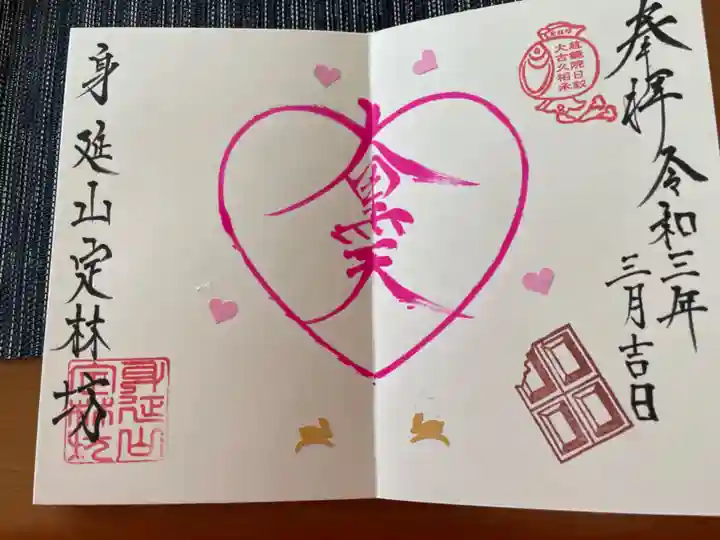 奉拝 令和三年
三月吉日
大黒天
身延山定林坊
身延山
定林坊